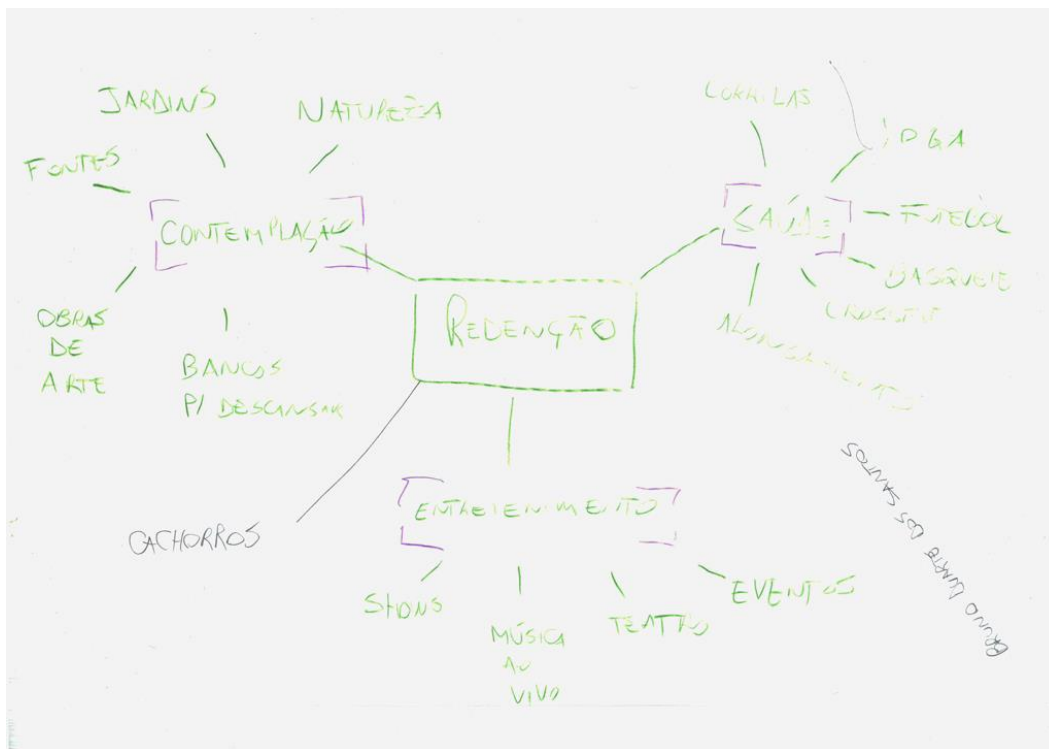 JARDINS
NATUREZA
FONTES
CONTEMPLAÇÃO
OBRAS
DE
ARTE
BANCOS
P/ DESCANSAR
REDENÇÃO
CORRIDAS
SAÚDE
FUTEBOL
BASQUETE
CROSSFIT
ALONGAMENTO
CACHORROS
ENTRETENIMENTO
SHOWS
MÚSICA
AO
VIVO
TEATRO
EVENTOS
BRUNO DUARTE DOS SANTOS